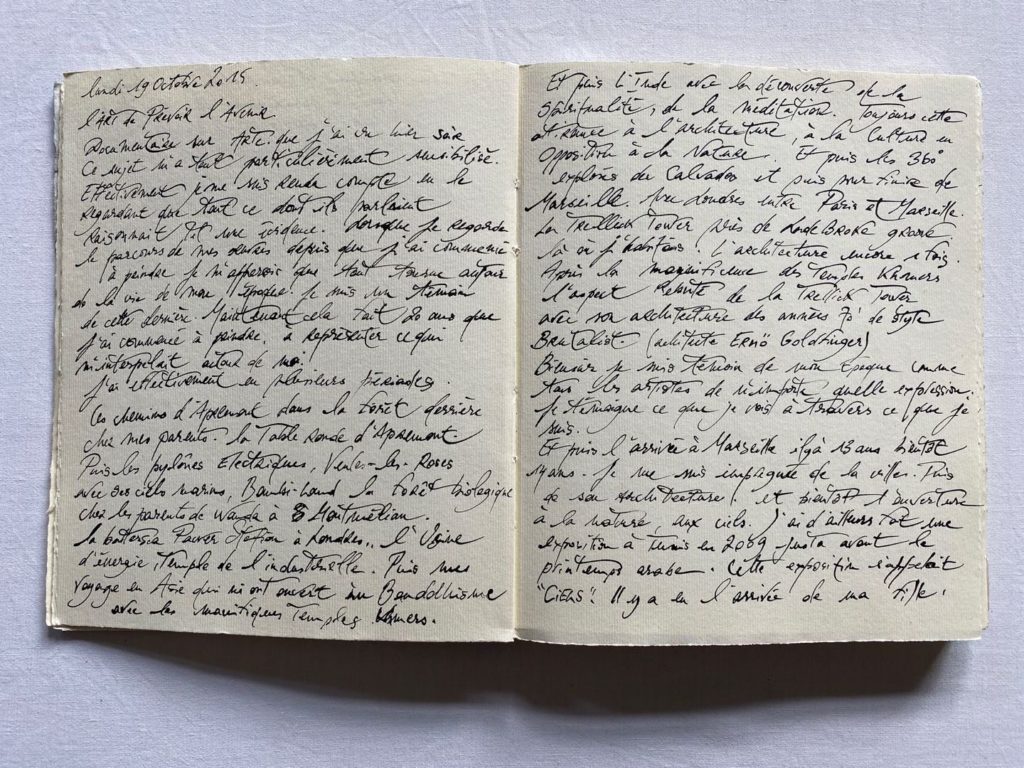 lundi 19 Octobre 2015.
l'ART de Prévoir l'Avenir
Documentaire sur Arte que j'ai vu hier soir
Ce sujet m'a tout particulièrement sensibilisé.
Effectivement je me suis rendu compte en le
Regardant que tout ce dont ils parlaient
Raisonnait une évidence. Lorsque je regarde
le parcours de mes depuis que j'ai commencé
à peindre je m'aperçois que tout tourne autour
de la vie de mon époque. Je suis un témoin
de cette dernière. Maintenant cela fait 30 ans que
j'ai commencé à peindre, à représenter ce qui
m'interpelait autour de moi.
j'ai effectivement eu plusieurs périodes.
Les chemins d'Apremont dans la forêt derrière
chez mes parents. la Table Ronde d'Apremont.
Puis les pylônes Electriques, Ventes-les-Roses
avec ses ciels marins, Bambi-Land la forêt biologique
chez les parents de Wanda à Montmélian.
la battersia Pawer Station à Londres.. l'Usine
d'énergie, Temple de l'industrielle. Puis mes
voyage en Asie qui m'ont ouvert au Bouddhisme
avec les magnifiques Temples khmers.
Et puis L'Inde avec la découverte de la
Spiritualité, de la méditation. Toujours cette
attirance à l'architecture, à la Culture en
opposition à la Nature. Et puis les 360°
explorés du Calvados et puis pour finir de
Marseille. Avec Londres entre Paris et Marseille.
La Trellick Tower près de Ladebroke grave
là où j'habitais. L'architecture encore 1 fois.
Après la magnificence des Temples Khmers
l'aspect Rebute de la Trellick Tower
avec son architecture des années 70' de style
Brutalist. (architecte Ernö Goldfinger)
Biensûr je suis témoin de mon époque comme
tous les artistes de n'importe quelle expression.
Je témoigne ce que je vois à travers ce que je
suis.
Et puis l'arrivée à Marseille il y a 13 ans bientôt
14 ans. Je me suis impregnée de la ville. Puis
de son Architecture. et bientôt l'ouverture
à la nature, aux ciels. J'ai d'ailleurs fait une
exposition à Tunis en 2009 juste avant le
printemps arabe. Cette exposition s'appelait
"CIELS". Il y a eu l'arrivée de ma fille.